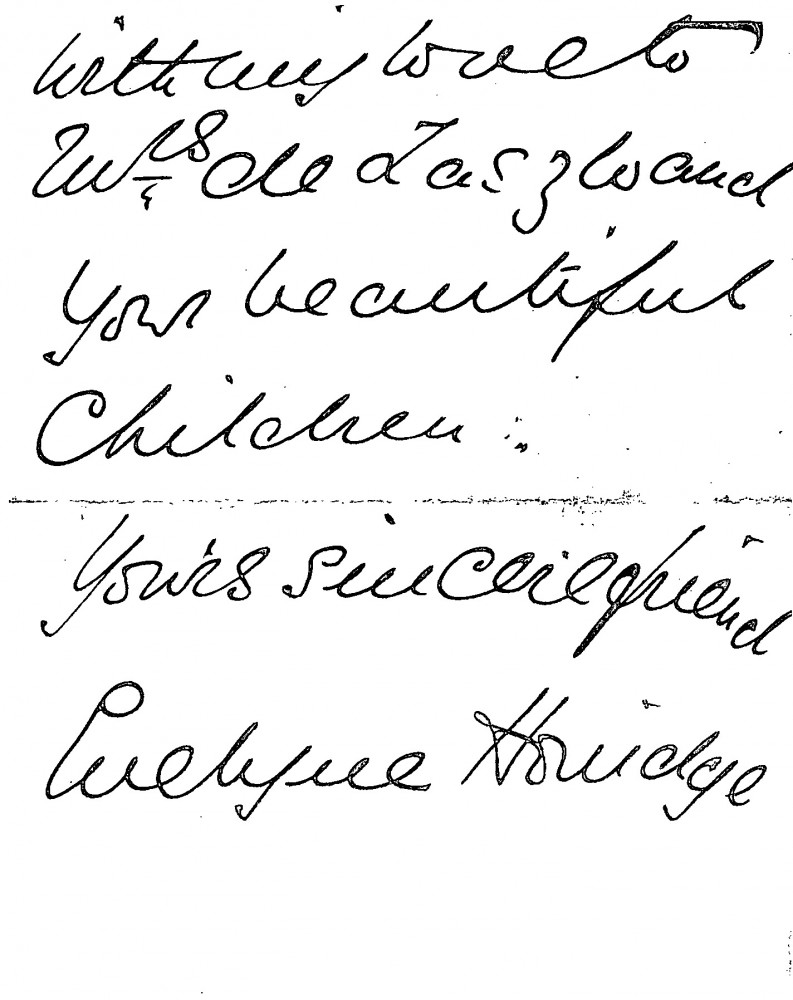 with my love to
Mrs de Laszlo and
your beautiful
Children.
Yours sincere friend
Evelyne Horridge